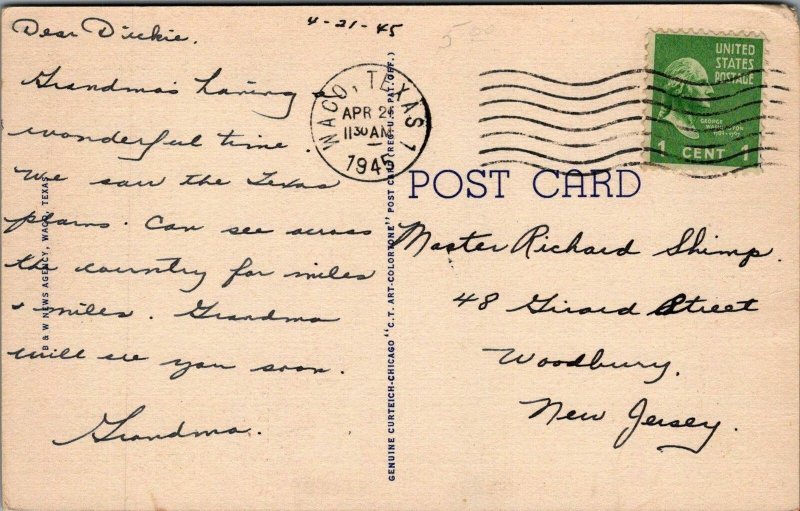 4-21-45
Dear Dickie.
Grandma's having a
wonderful time.
We saw the Texas
plains. Can see across
the country for miles
& miles. Grandma
will see you soon.
Grandma.
B & W NEWS AGENCY, WACO, TEXAS
GENUINE CURTEICH-CHICAGO "C.T. ART-COLORTONE" POST CARD (REG. U.S. PAT. OFF.)
WACO, TEXAS 1
APR 21
11 30 AM
1945
UNITED
STATES
POSTAGE
GEORGE
WASHINGTON
1 CENT 1
POST CARD
Master Richard Shimp.
48 Girard Street
Woodbury.
New Jersey.